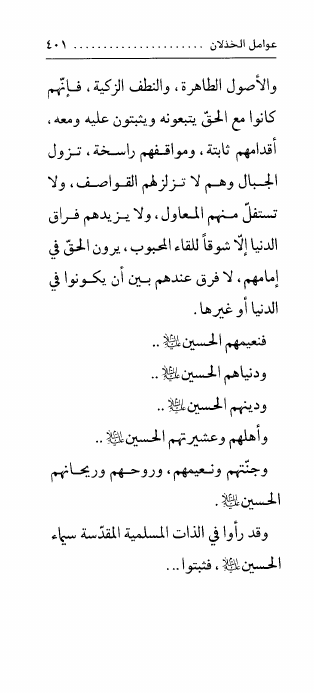 عوامل الخذلان ...................... ٤٠١
والأصول الطاهرة، والنطف الزكية، فـإنّهم
كانوا مع الحقّ يتبعونه ويثبتون عليه ومعه،
أقدامهم ثابتة، ومواقـفهم راسـخة، تـزول
الجـبال وهـم لا تـزلزلهم القـواصـف، ولا
تستفلّ مـنهم المـعاول، ولا يـزيدهم فـراق
الدنيا إلّا شوقاً للقاء المحبوب، يرون الحقّ في
إمامهم، لا فرق عندهم بـين أن يكـونوا في
الدنيا أو غيرها.
فنعيمهم الحسين ﵇ ..
ودنياهم الحسين ﵇ ..
ودينهم الحسين ﵇ ..
وأهلهم وعشيرتهم الحسين ﵇ ..
وجنّتهم ونـعيمهم، وروحـهم وريحـانهم
الحسين ﵇ .
وقد رأوا في الذات المسلمية المقدّسة سيماء
الحسين ﵇ ، فثبتوا ...